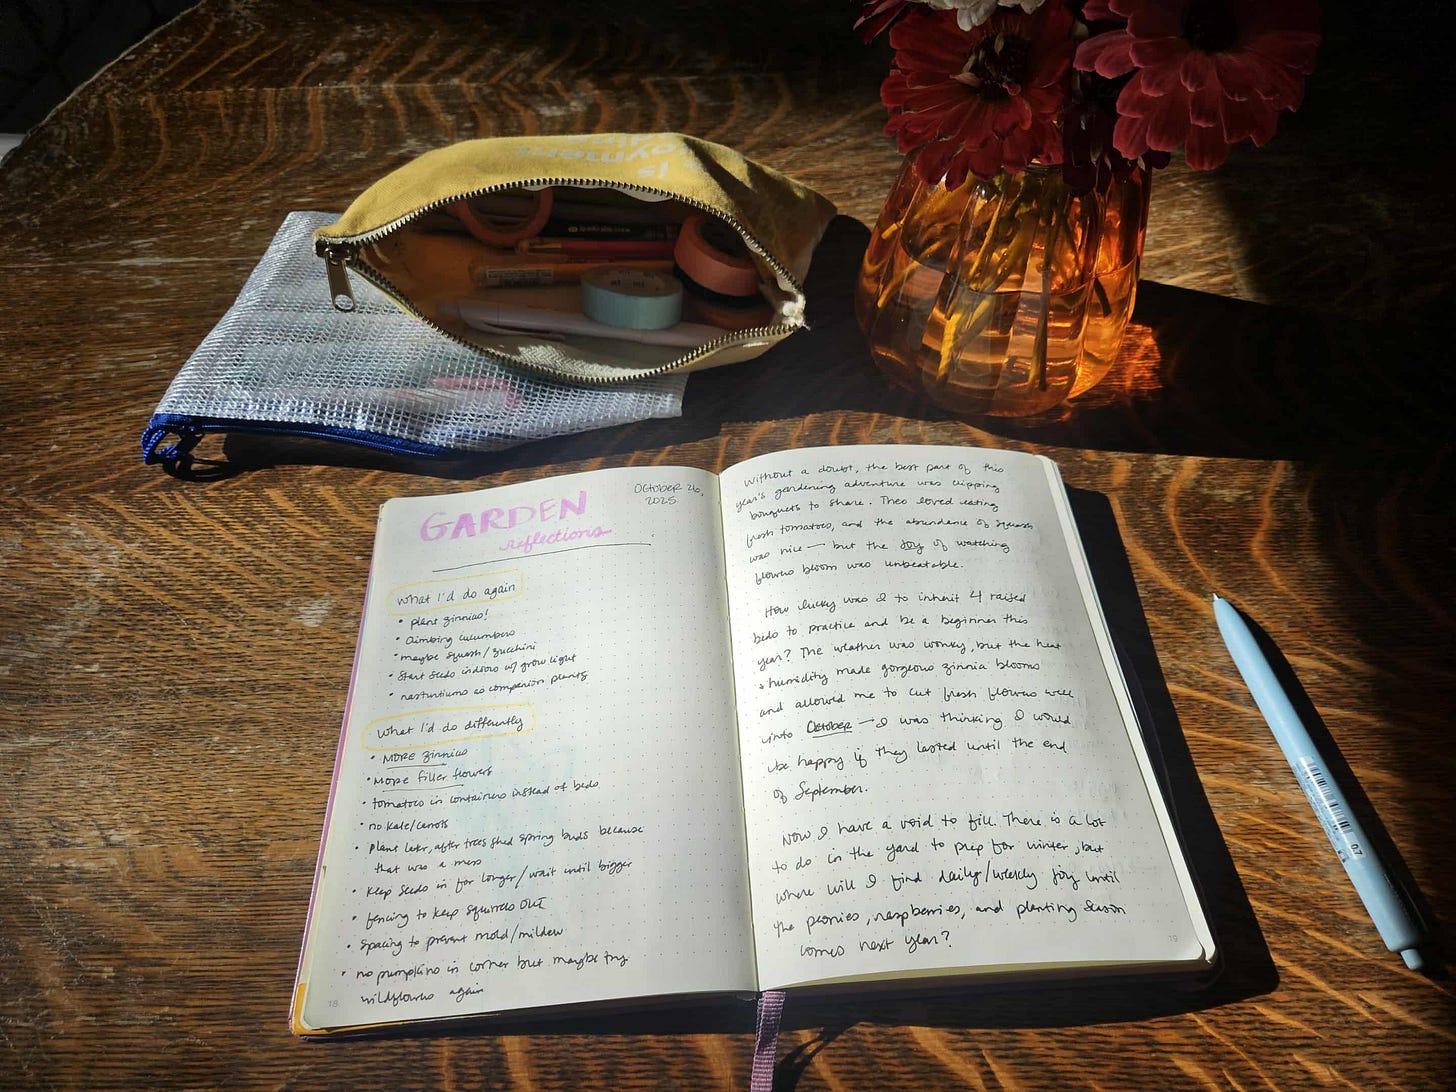 GARDEN
reflections
October 26,
2025
what I'd do again
• plant zinnias!
• climbing cucumbers
• maybe squash/zucchini
• start seeds indoors w/ grow light
• nasturtiums as companion plants
what I'd do differently
• MORE zinnias
• MORE filler flowers
• tomatoes in containers instead of beds
• no kale/carrots
• plant later, after trees shed spring buds because
that was a mess
• keep seeds in for longer/wait until bigger
• fencing to keep squirrels OUT
• spacing to prevent mold/mildew
• no pumpkins in corner but maybe try
wildflowers again
18
Without a doubt, the best part of this
year's gardening adventure was clipping
bouquets to share. Theo loved eating
fresh tomatoes, and the abundance of squash
was nice — but the joy of watching
flowers bloom was unbeatable.
How lucky was I to inherit 4 raised
beds to practice and be a beginner this
year? The weather was wonky, but the heat
+ humidity made gorgeous zinnia blooms
and allowed me to cut fresh flowers well
into October — I was thinking I would
be happy if they lasted until the end
of September.
Now I have a void to fill. There is a lot
to do in the yard to prep for winter, but
where will I find daily/weekly joy until
the peonies, raspberries, and planting season
comes next year?
19
is
payment
mt
0.7